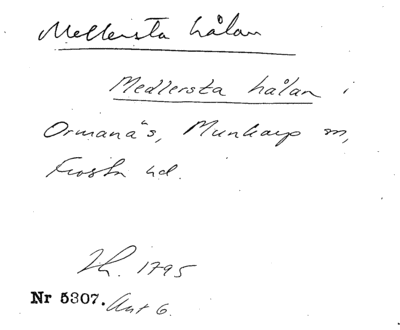 Mellersta hålan
Medlersta hålan i
Ormanäs, Munkarp sn,
Frosta hd.
Lh. 1795
Nr 5307. Akt 6.